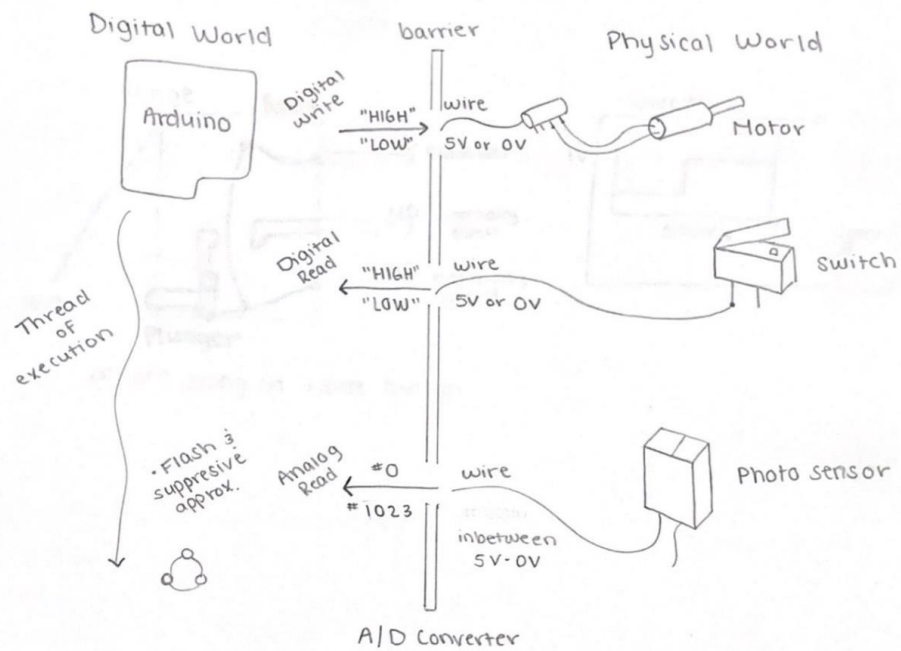 Digital World
barrier
Physical World
Arduino
Digital
Write
"HIGH"
"LOW"
wire
5V or 0V
Motor
Digital
Read
"HIGH"
"LOW"
wire
5V or 0V
Switch
Thread
of
execution
• Flash &
suppresive
approx.
Analog
Read
#0
#1023
wire
inbetween
5V-0V
Photo sensor
A/D Converter